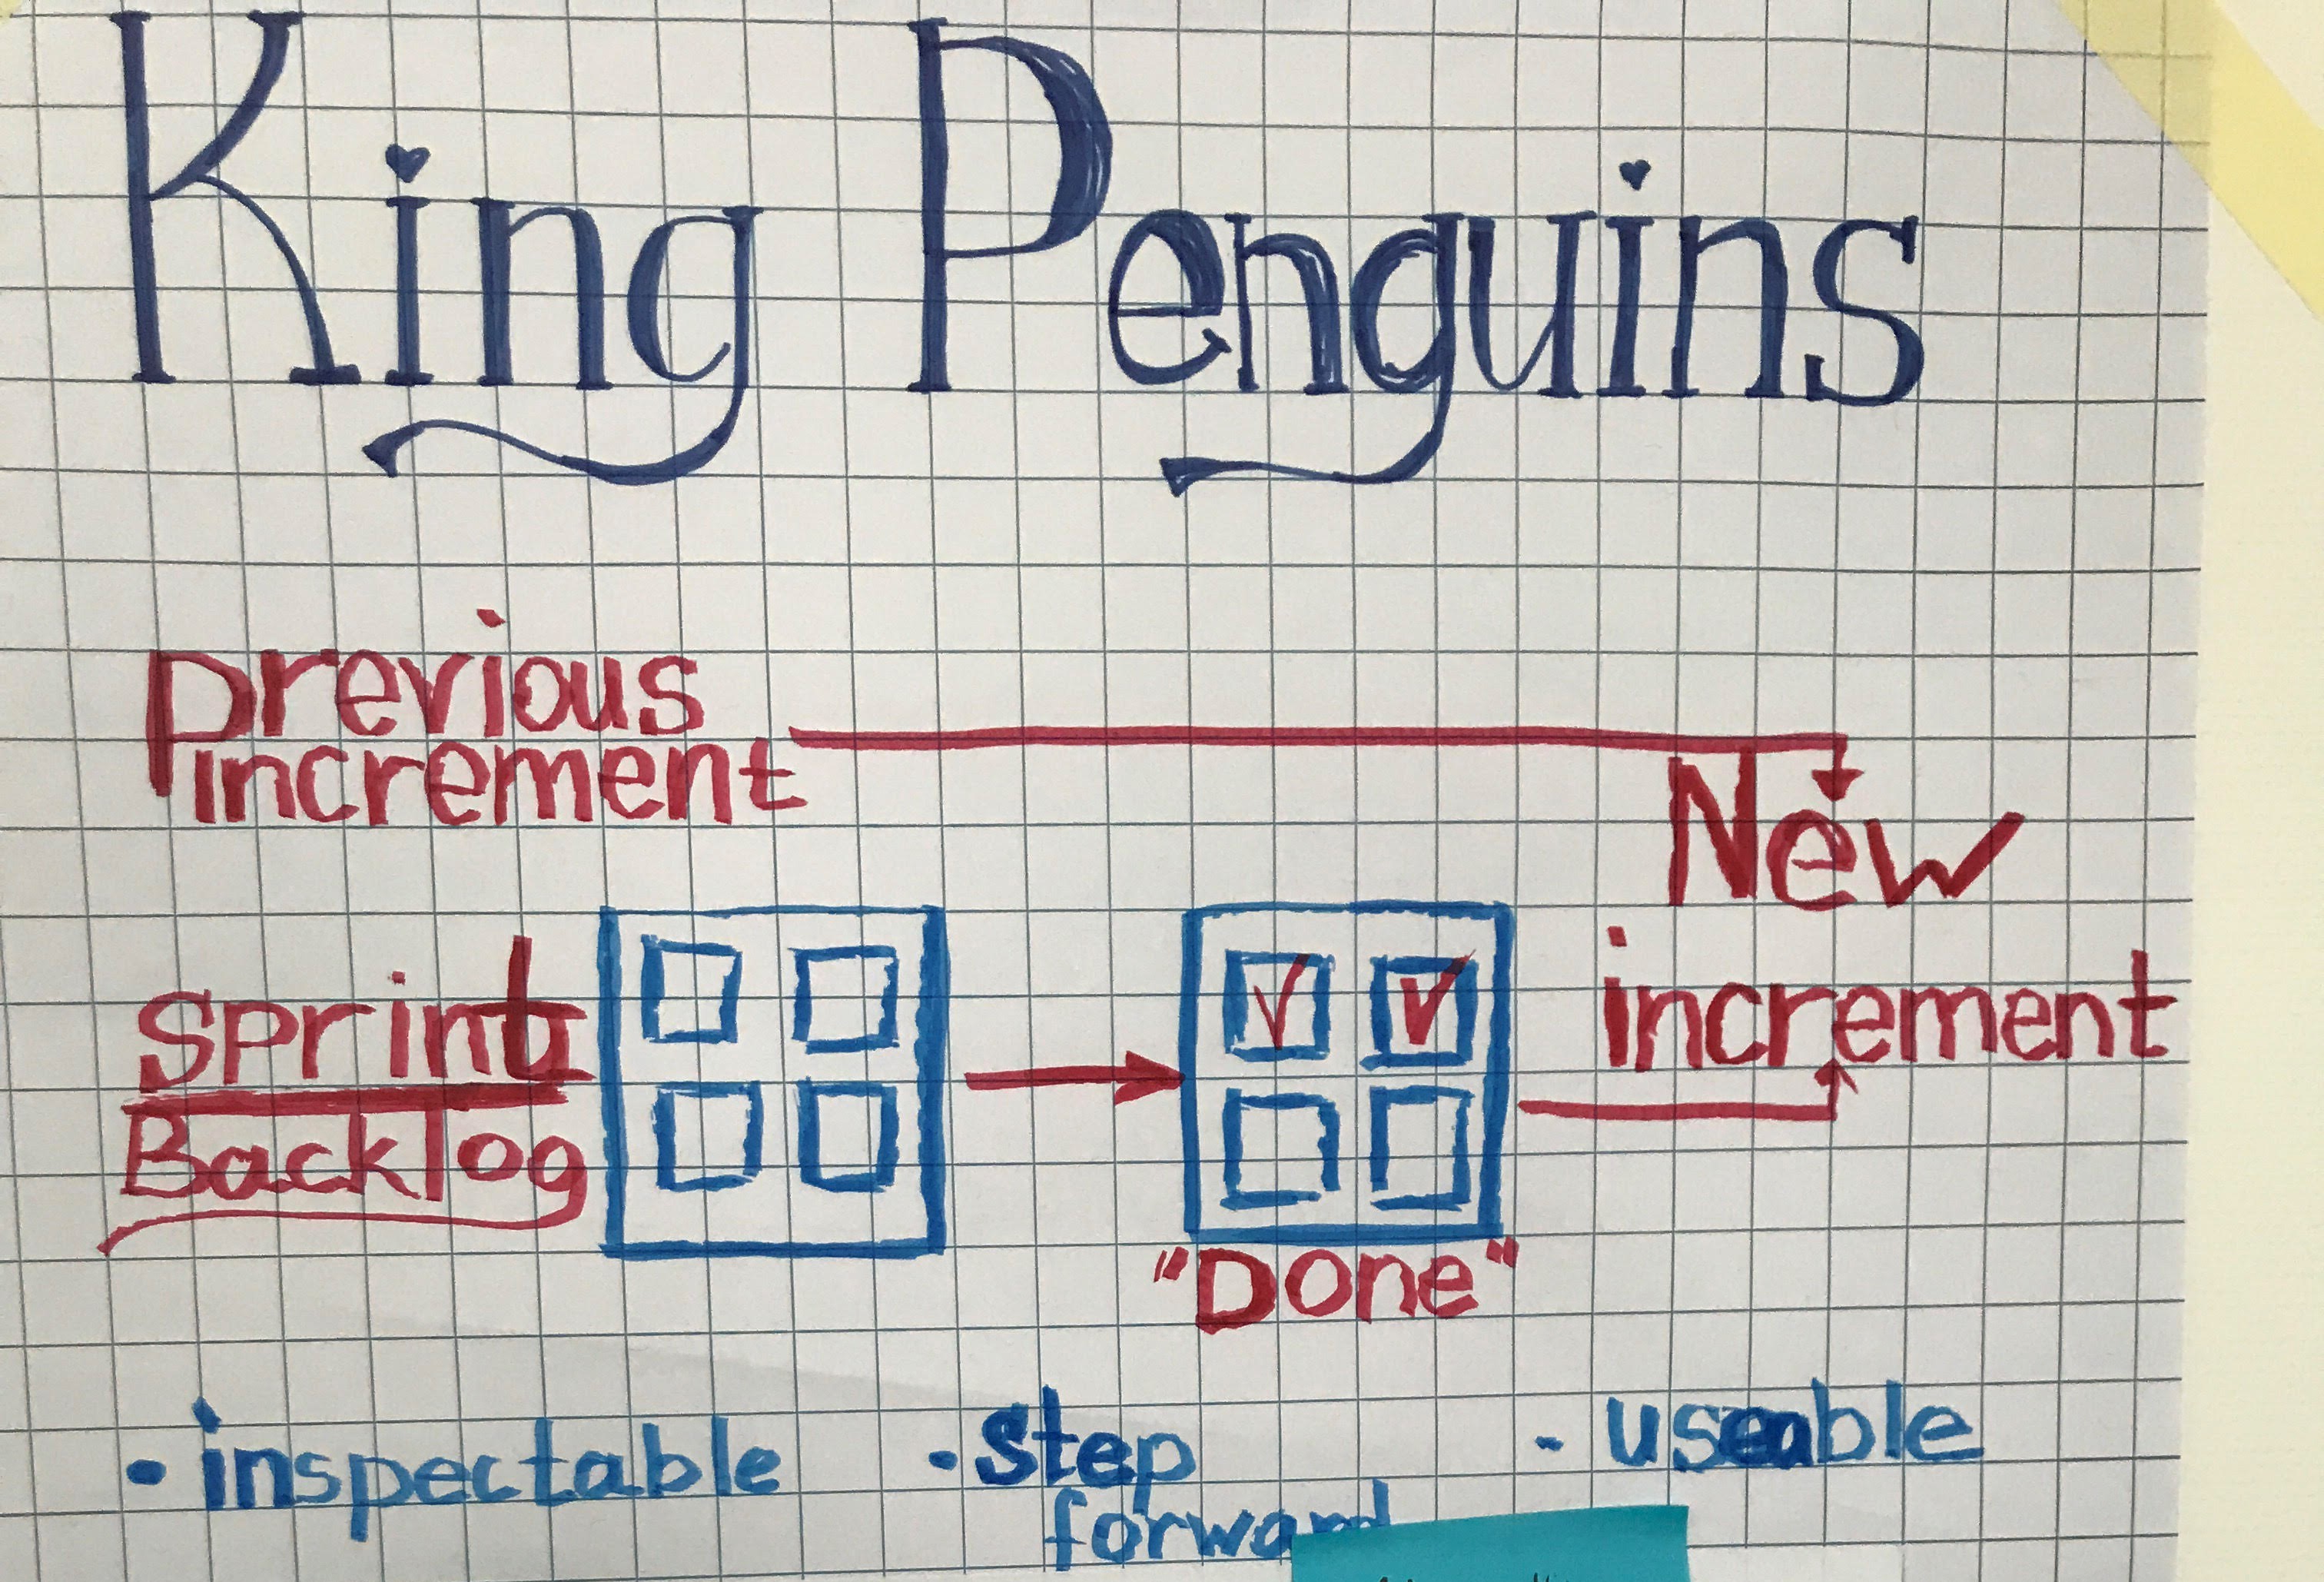 King Penguins
previous
increment
New
increment
Sprint
Backlog
"Done"
• inspectable
• Step
forward
- useable